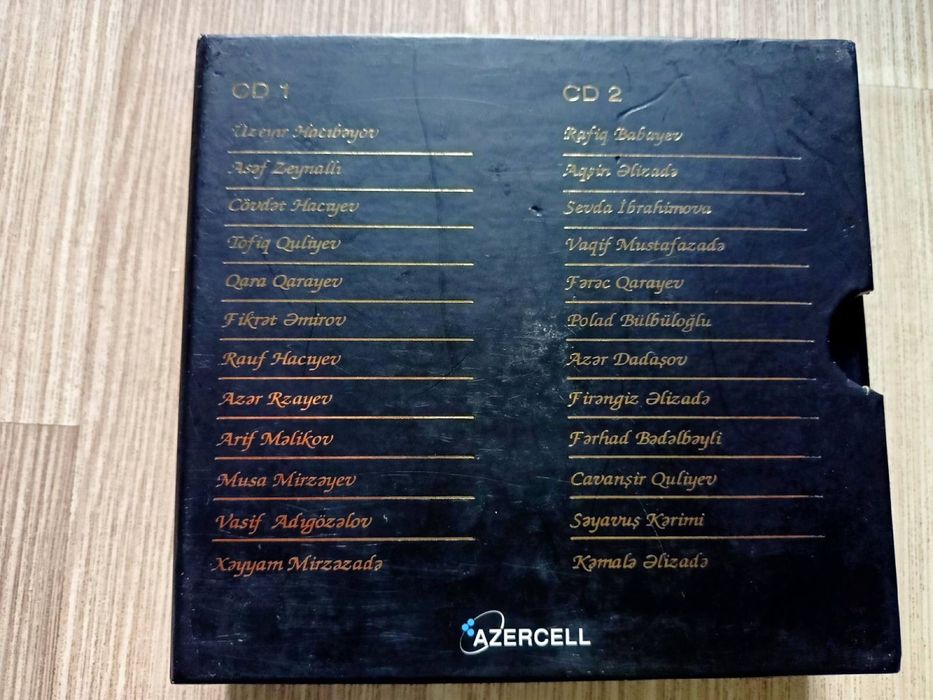 CD 1
Üzeyir Hacıbəyov
Asəf Zeynallı
Cövdət Hacıyev
Tofiq Quliyev
Qara Qarayev
Fikrət Əmirov
Rauf Hacıyev
Azər Rzayev
Arif Məlikov
Musa Mirzəyev
Vasif Adıgözəlov
Xəyyam Mirzəzadə
CD 2
Rafiq Babayev
Aqşin Əlizadə
Sevda İbrahimova
Vaqif Mustafazadə
Fərəc Qarayev
Polad Bülbüloğlu
Azər Dadaşov
Firəngiz Əlizadə
Fərhad Bədəlbəyli
Cavanşir Quliyev
Səyavuş Kərimi
Kəmalə Əlizadə
AZERCELL